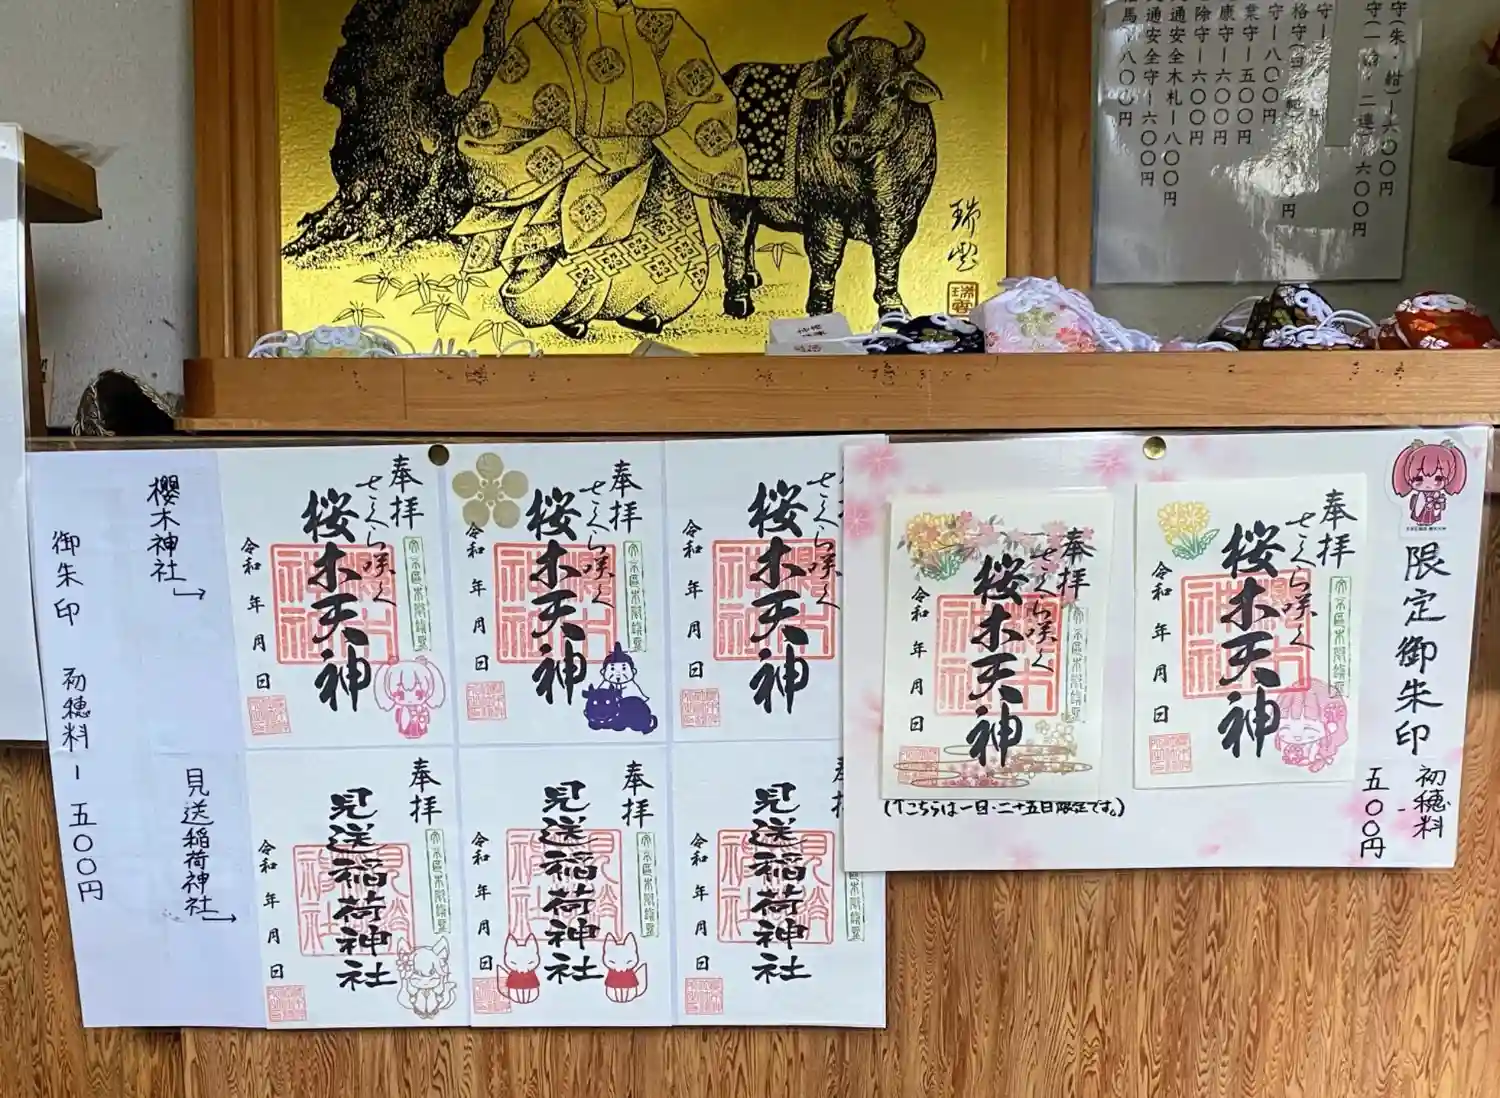 守(朱・紺)一六〇〇円
六〇〇円
守一八〇〇円
業守一五〇〇円
康守一六〇〇円
除守一六〇〇円
通安全木札一八〇〇円
通安全守一六〇〇円
馬一八〇〇円
御朱印 初穂料一五〇〇円
櫻木神社
見送稲荷神社
奉拝
さくら咲く
桜木天神
令和 年 月 日
奉拝
さくら咲く
桜木天神
令和 年 月 日
さくら咲く
桜木天神
令和 年 月 日
奉拝
見送稲荷神社
令和 年 月 日
奉拝
見送稲荷神社
令和 年 月 日
見送稲荷神社
令和 年 月 日
限定御朱印
初穂料
五〇〇円
奉拝
さくら咲く
桜木天神
令和 年 月 日
奉拝
さくら咲く
桜木天神
令和 年 月 日
(↑こちらは一日・二十五日限定です。)